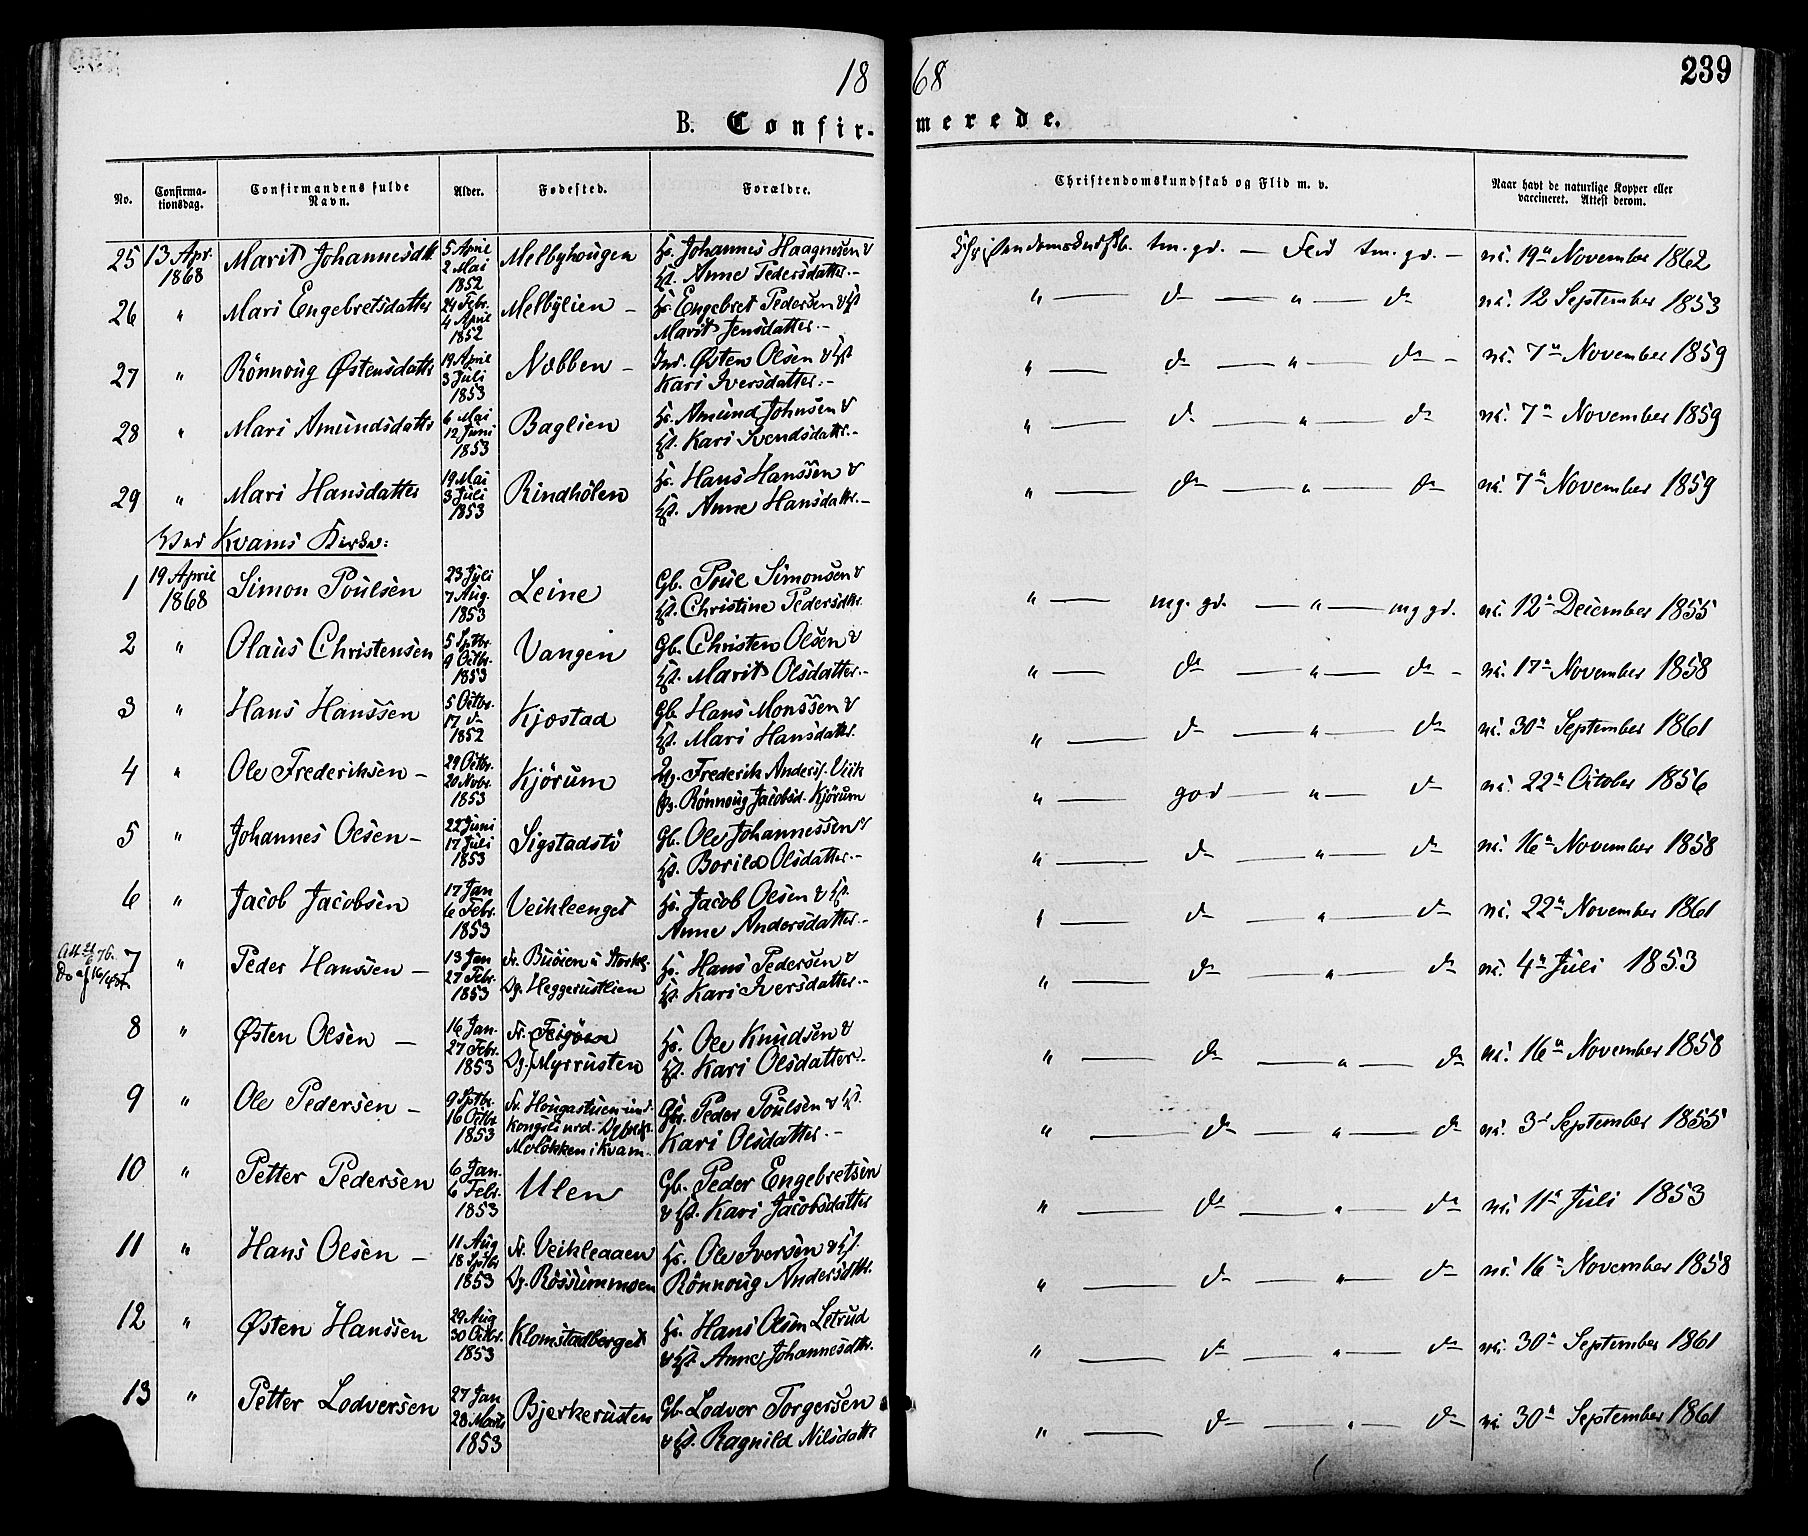 1868
239
B. Confirmerede.
No. Confirmationsdag. Confirmandens fulde Navn. Alder. Fødested. Forældre. Christendomskundskab og Flid m. v. Naar havt de naturlige Kopper eller vaccineret. Attest derom.
25 13 Apr. 1868 Marit Johannesdtr 5 April 2 Mai 1852 Melbyhougen Hs. Johannes Haagensen & Hst. Anne Pedersdatter.- Christendomskundskb. tm. gd. — Flid tm. gd. — va. 19de November 1862
26 " Mari Engebretsdatter 24 Febr. 4 April 1852 Melbylien — Hs. Engebret Pedersen & Hst Marit Jensdatter.- " — do — " — do va. 12 September 1853
27 " Rönnoug Østensdatter 19 April 3 Juli 1853 Nabben — Ind. Østen Olsen & Hst Kari Iversdatter.- " — do — " — do — va. 7de November 1859
28 " Mari Amundsdatter 6 Mai 12 Juni 1853 Baglien Hs. Amund Johnsen & Hst. Kari Svendsdatter.- " — do — " — do va. 7de November 1859
29 " Mari Hansdatter 19 Mai 3 Juli 1853 Rindhölen Hs. Hans Hanssen & Hst. Anne Hansdatter.- " — do — " — do va. 7de November 1859
Ved Kvams Kirke:
1 19 April 1868 Simon Poulsen 23 Juli 7 Aug. 1853 Leine Gb. Poul Simonsen & Hst. Christine Pedersdtr. " — mg. gd. — " — mg gd. va. 12te December 1855
2 " Olaus Christensen 5 Sptbr. 9 Octbr. 1853 Vangen Gb. Christen Olsen & Hst. Marit Olsdatter.- " — do — " — do — va. 17de November 1858
3 " Hans Hanssen 5 Octbr. 17 do 1852 Kjostad Gb. Hans Monssen & Hst. Mari Hansdatter. " — do — " — do va. 30te September 1861
4 " Ole Frederiksen — 29 Octbr. 20 Novbr. 1853 Kjörum Ug. Frederik Anders. Veik Pg. Rönnoug Jacobsd. Kjörum " — god — " — do va. 22de October 1856
5 " Johannes Olsen — 22 Juni 17 Juli 1853 Sigstadstö Gb. Ole Johannessen & Hst. Borild Olsdatter.- " — do — " — do va. 16de November 1858
6 " Jacob Jacobsen 17 Jan 6 Febr. 1853 Veikleenget Hs. Jacob Olsen & Hst. Anne Andersdatter.- " — do — " — do va. 22de November 1861
7 " Peder Hanssen — 13 Jan 27 Febr. 1853 Fr. Buöien i Storkl. Dg. Heggerustlien Hs. Hans Pedersen & Hst. Kari Iversdatter.- " — do — " — do va. 4de Juli 1853
8 " Østen Olsen — 16 Jan. 27 Febr. 1853 Fr. Teigöen Dg. Myrrusten Hs. Ole Knudsen & Hst. Kari Olsdatter. " — do — " — do va. 16de November 1858
9 " Ole Pedersen — 9 Sptbr. 16 Octbr. 1853 Fr. Hougastuen i Kongsli Moløkken i Kvam. Gbr. Peder Poulsen & Hst. Kari Olsdatter.- " — do — " — do va. 3de September 1855
10 " Petter Pedersen 6 Jan. 6 Febr. 1853 Ulen Gb. Peder Engebretsen & Hst. Kari Jacobsdatter " — do — " — do va. 11te Juli 1853
11 " Hans Olsen — 11 Aug 18 Sptbr 1853 Fr. Veikleaaen Dg. Rössummoen Hs. Ole Iversen & Hst. Rönnoug Andersdtr. " — do — " — do va. 16de November 1858
12 " Østen Hanssen 29 Aug 30 Octbr. 1853 Klomstadberget Hs. Hans Olsen Letrud & Hst. Anne Johannesdtr. " — do — " — do va. 30te September 1861
13 " Petter Lodversen 27 Jan 28 Marts 1853 Bjerkerusten Gb. Lodver Torgersen & Hst. Ragnild Nilsdatter " — do — " — do va. 30te September 1861